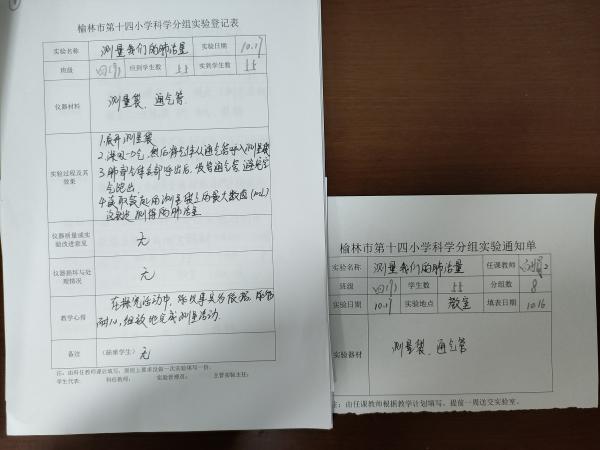 榆林市第十四小学科学分组实验登记表
实验名称 测量我们的肺活量 实验日期 10.17
班级 四(9) 应到学生数 55 实到学生数 55
仪器材料 测量袋、通气管
实验过程及其效果
1.展开测量袋
2.深吸一口气,然后将气体从通气管呼入测量袋
3.肺部气体全部呼出后,
气跑出
4.读取袋
这就是测得的肺活量
仪器质量或实验改进意见 无
仪器损坏与处理情况 无
教学心得
在探究活动中,
耐心、细致地完成测量活动.
备注 (缺课学生) 无
注:由科任教师课后填写,原则上要求没做一次实验填写一份。
学生代表: 科任教师: 实验管理员: 主管实验主任:
榆林市第十四小学科学分组实验通知单
实验名称 测量我们的肺活量 任课教师
班级 四(9) 学生数 55 分组数 8
实验日期 10.17 实验地点 教室 填表日期 10.16
实验器材 测量袋、通气管
注:由任课教师根据教学计划填写,提前一周送交实验室。